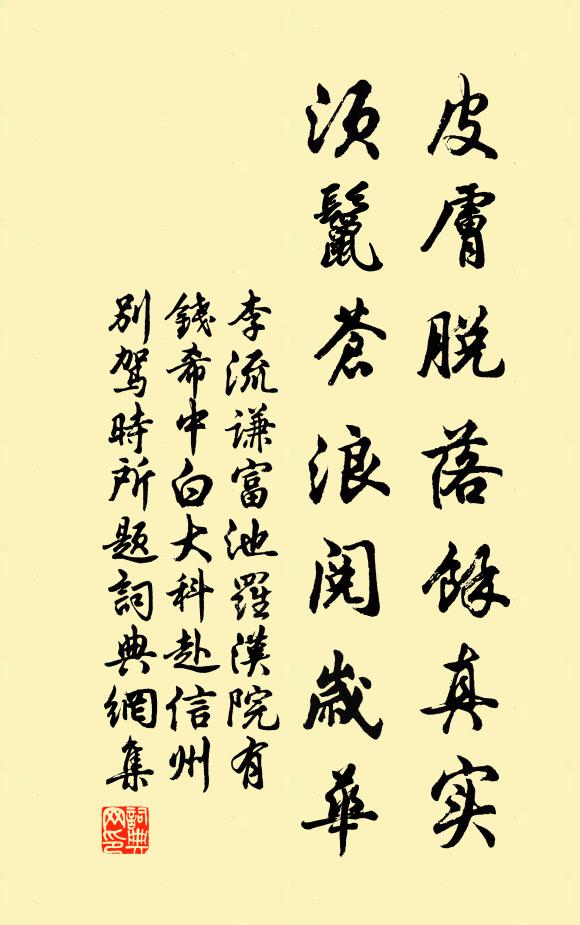 皮膚脱落餘真实
須鬣蒼浪閱歲華
李流謙富池羅漢院有
錢希中白大科赴信州
別駕時所題詞典網集
詞典网印